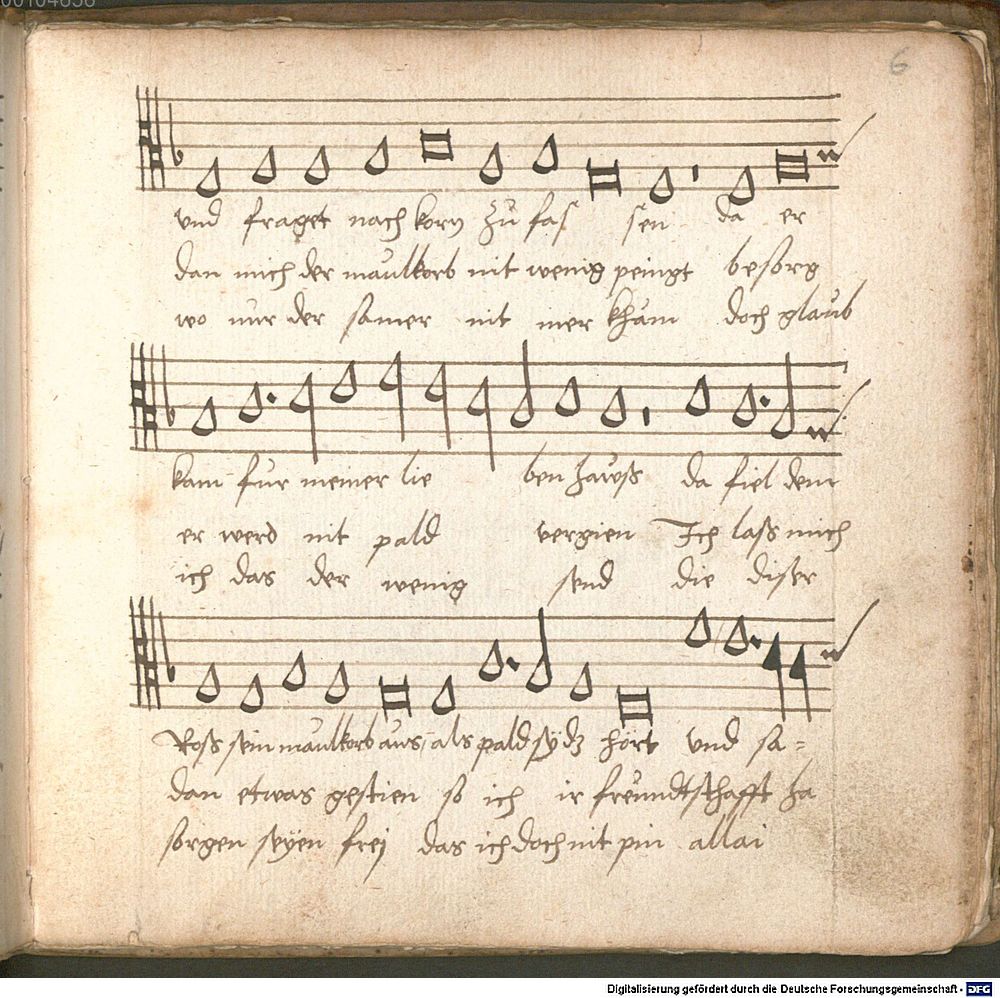 00104638
6
vnd fraget nach korn zu fas sen da er
dan mich der maulkorb nit wenig peingt besorg
wo nur der samer nit mer kham doch glaub
kam fur meiner lie ben hauss da fiel dem
er werd nit pald vergien Ich lass mich
ich das der wenig send die diser
Ross sein maulkorb aus, als pald sÿ dz hört vnd sa=
dan etwas gestien so ich ir freundtschafft ha
sorgen seÿen frej das ich doch nit pin allai
Digitalisierung gefördert durch die Deutsche Forschungsgemeinschaft - DFG